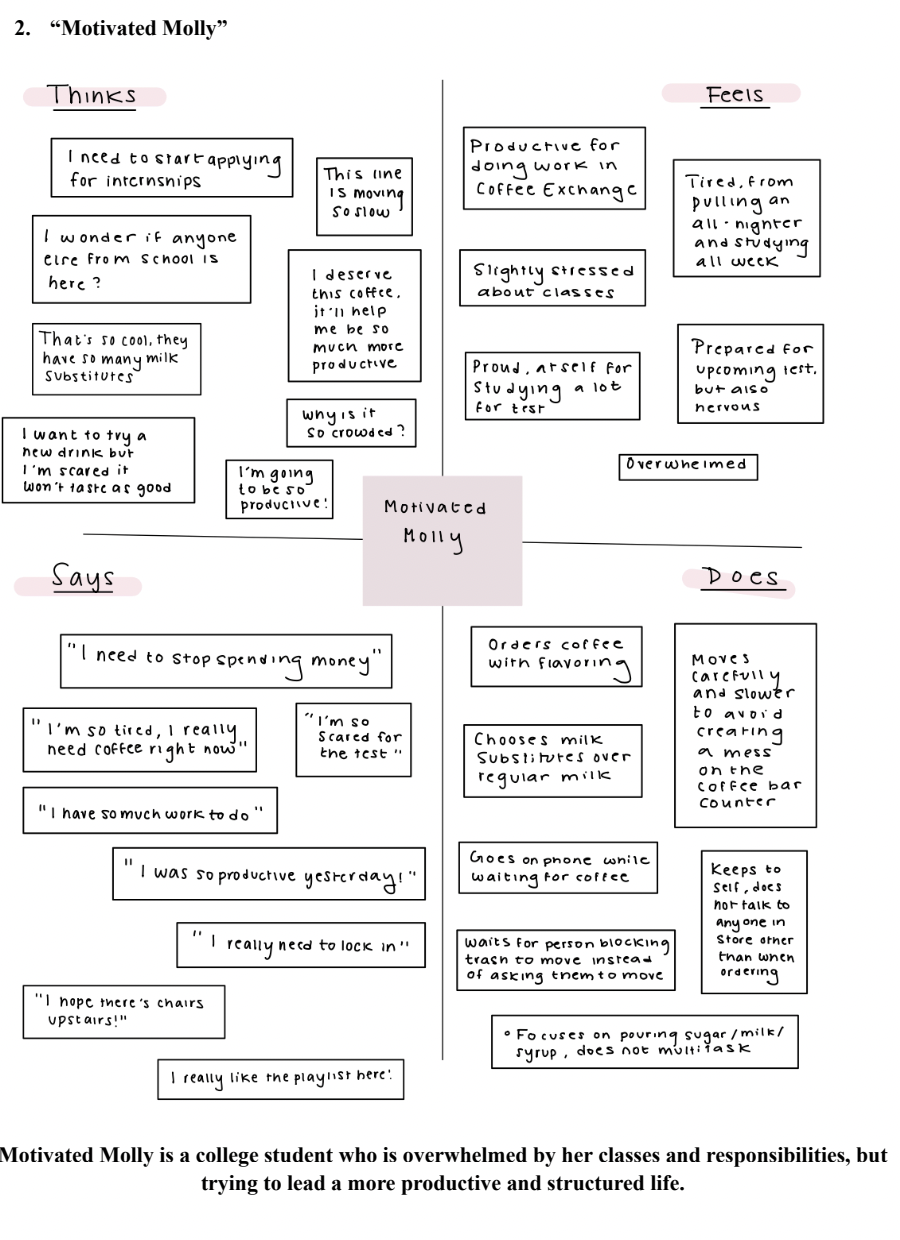 2. “Motivated Molly”
Thinks
I need to start applying
for internships
This line
is moving
so slow
I wonder if anyone
else from school is
here?
I deserve
this coffee,
it'll help
me be so
much more
productive
That's so cool, they
have so many milk
substitutes
why is it
so crowded?
I want to try a
new drink but
I'm scared it
won't taste as good
I'm going
to be so
productive!
Feels
Productive for
doing work in
Coffee Exchange
Tired, from
pulling an
all-nighter
and studying
all week
Slightly stressed
about classes
Proud, of self for
studying a lot
for test
Prepared for
upcoming test,
but also
nervous
Overwhelmed
Motivated
Molly
Says
"I need to stop spending money"
"I'm so tired, I really
need coffee right now"
"I'm so
scared for
the test"
"I have so much work to do"
"I was so productive yesterday!"
"I really need to lock in"
"I hope there's chairs
upstairs!"
I really like the playlist here!
Does
Orders coffee
with flavoring
Moves
carefully
and slower
to avoid
creating
a mess
on the
coffee bar
counter
Chooses milk
substitutes over
regular milk
Goes on phone while
waiting for coffee
Keeps to
self, does
not talk to
anyone in
store other
than when
ordering
waits for person blocking
trash to move instead
of asking them to move
° Focuses on pouring sugar/milk/
syrup, does not multitask
Motivated Molly is a college student who is overwhelmed by her classes and responsibilities, but
trying to lead a more productive and structured life.